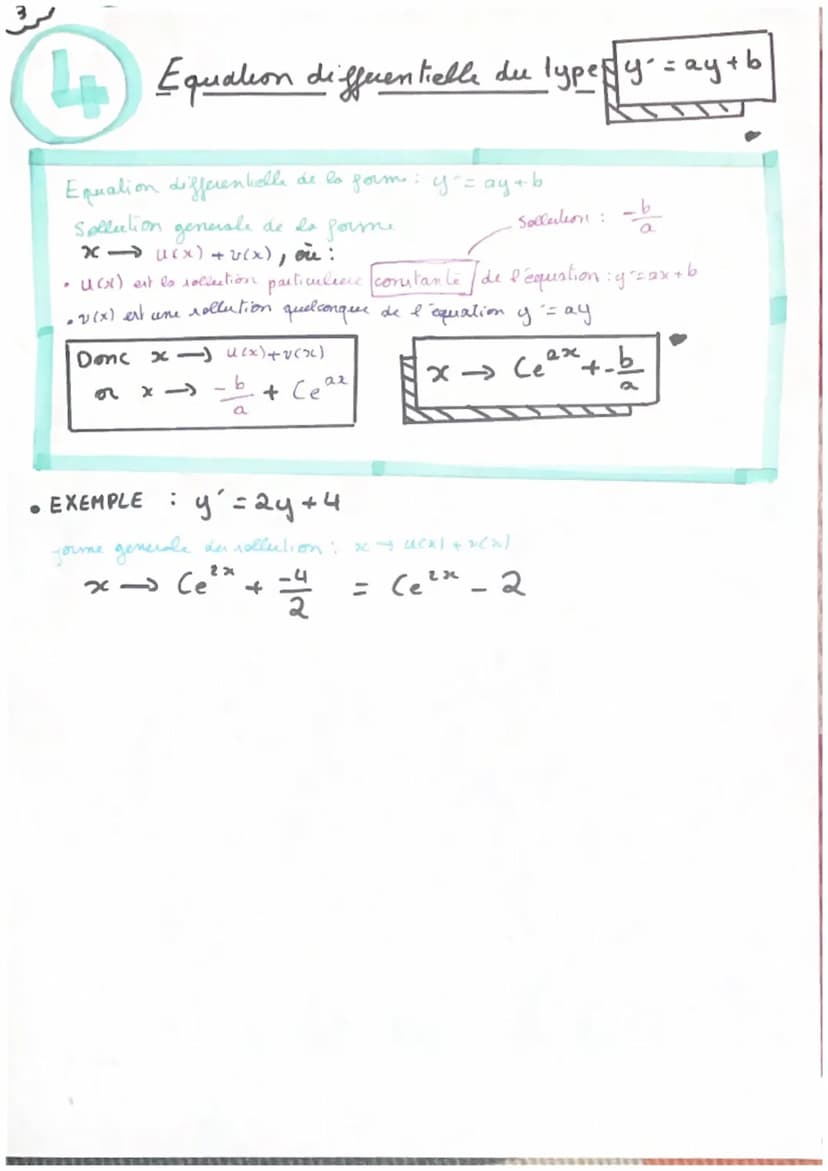 3
4 Equation differentielle du type y' = ay + b
Equation differentielle de la forme : y' = ay + b
Sollution generale de la forme
Sollution : -b/a
x → u(x) + v(x), où :
• u(x) est la sollution particuliere constante de l'équation : y' = ax + b
• v(x) est une sollution quelconque de l'équation y' = ay
Donc x → u(x) + v(x)
or x → -b/a + Ce^ax
x → Ce^ax + -b/a
• EXEMPLE : y' = 2y + 4
forme generale des sollution : x → u(x) + v(x)
x → Ce^2x + -4/2 = Ce^2x - 2